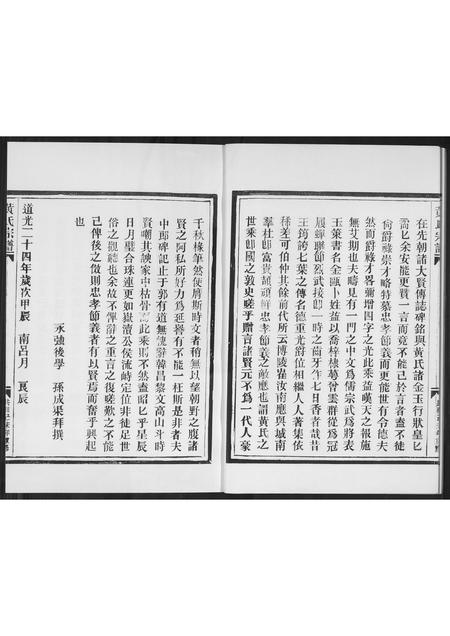 在先朝諸大賢傳誌碑銘與黃氏諸金玉行狀皇匕
需匕余安能更贅一言而竟不能已於言者蓋不徒
尚爵祿崇才略特墓忠孝節義而更能世有令德夫
然而爵祿才畧彌增四字之光此乘益嘆天之報施
無艾期也夫疇見有一門之中文為儒宗武為將表
玉策書名金甌卜姓益以喬梓棣萼曾雲群從為冠
履蟬聯節烈武接即一時之齒牙乍七日香者哉昔
王筠誇七葉之傳名德重光爵位相繼人人著集依
稀差可伯仲其餘前代所云博陵崔汝南應與城南
韋杜即富貴頡頑鮮忠孝節義之敵應也謂黃氏之
世乘即國之敦史嗟乎贈言諸賢元不為一代人豪
千秋椽筆然使膺斯時文者稍無以望朝野之腹諸
賢之阿私所好力為延譽有不能一枉斯是非者夫
中郎碑記止于郭有道無愧辭韓昌黎文高山斗時
賢嘲其諛家中枯骨 此乘則不然盍昭匕乎星辰
日月璧合珠連更如嶽瀆公侯流峙定位非徒足世
俗之觀聽也余故不憚辭之重言之復嗟歎之不能
己俾後之倣則忠孝節義者有以賢焉而奮乎興起
也
永強後學 孫成果拜撰
道光二十四年歲次甲辰 南呂月 良辰
黃氏宗譜